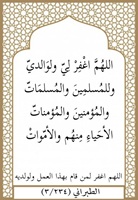 اللهُمَّ اغْفِرْ لِيْ ولوَالديّ
وللمُسلمِينَ والمُسلمَاتْ
والمُؤمنينَ والمُؤمناتْ
الأحيَاءِ مِنهُم والأمْوَاتْ
اللهم اغفر لمن قام بهذا العمل ولوالديه
الطبراني (٣/٢٣٤)